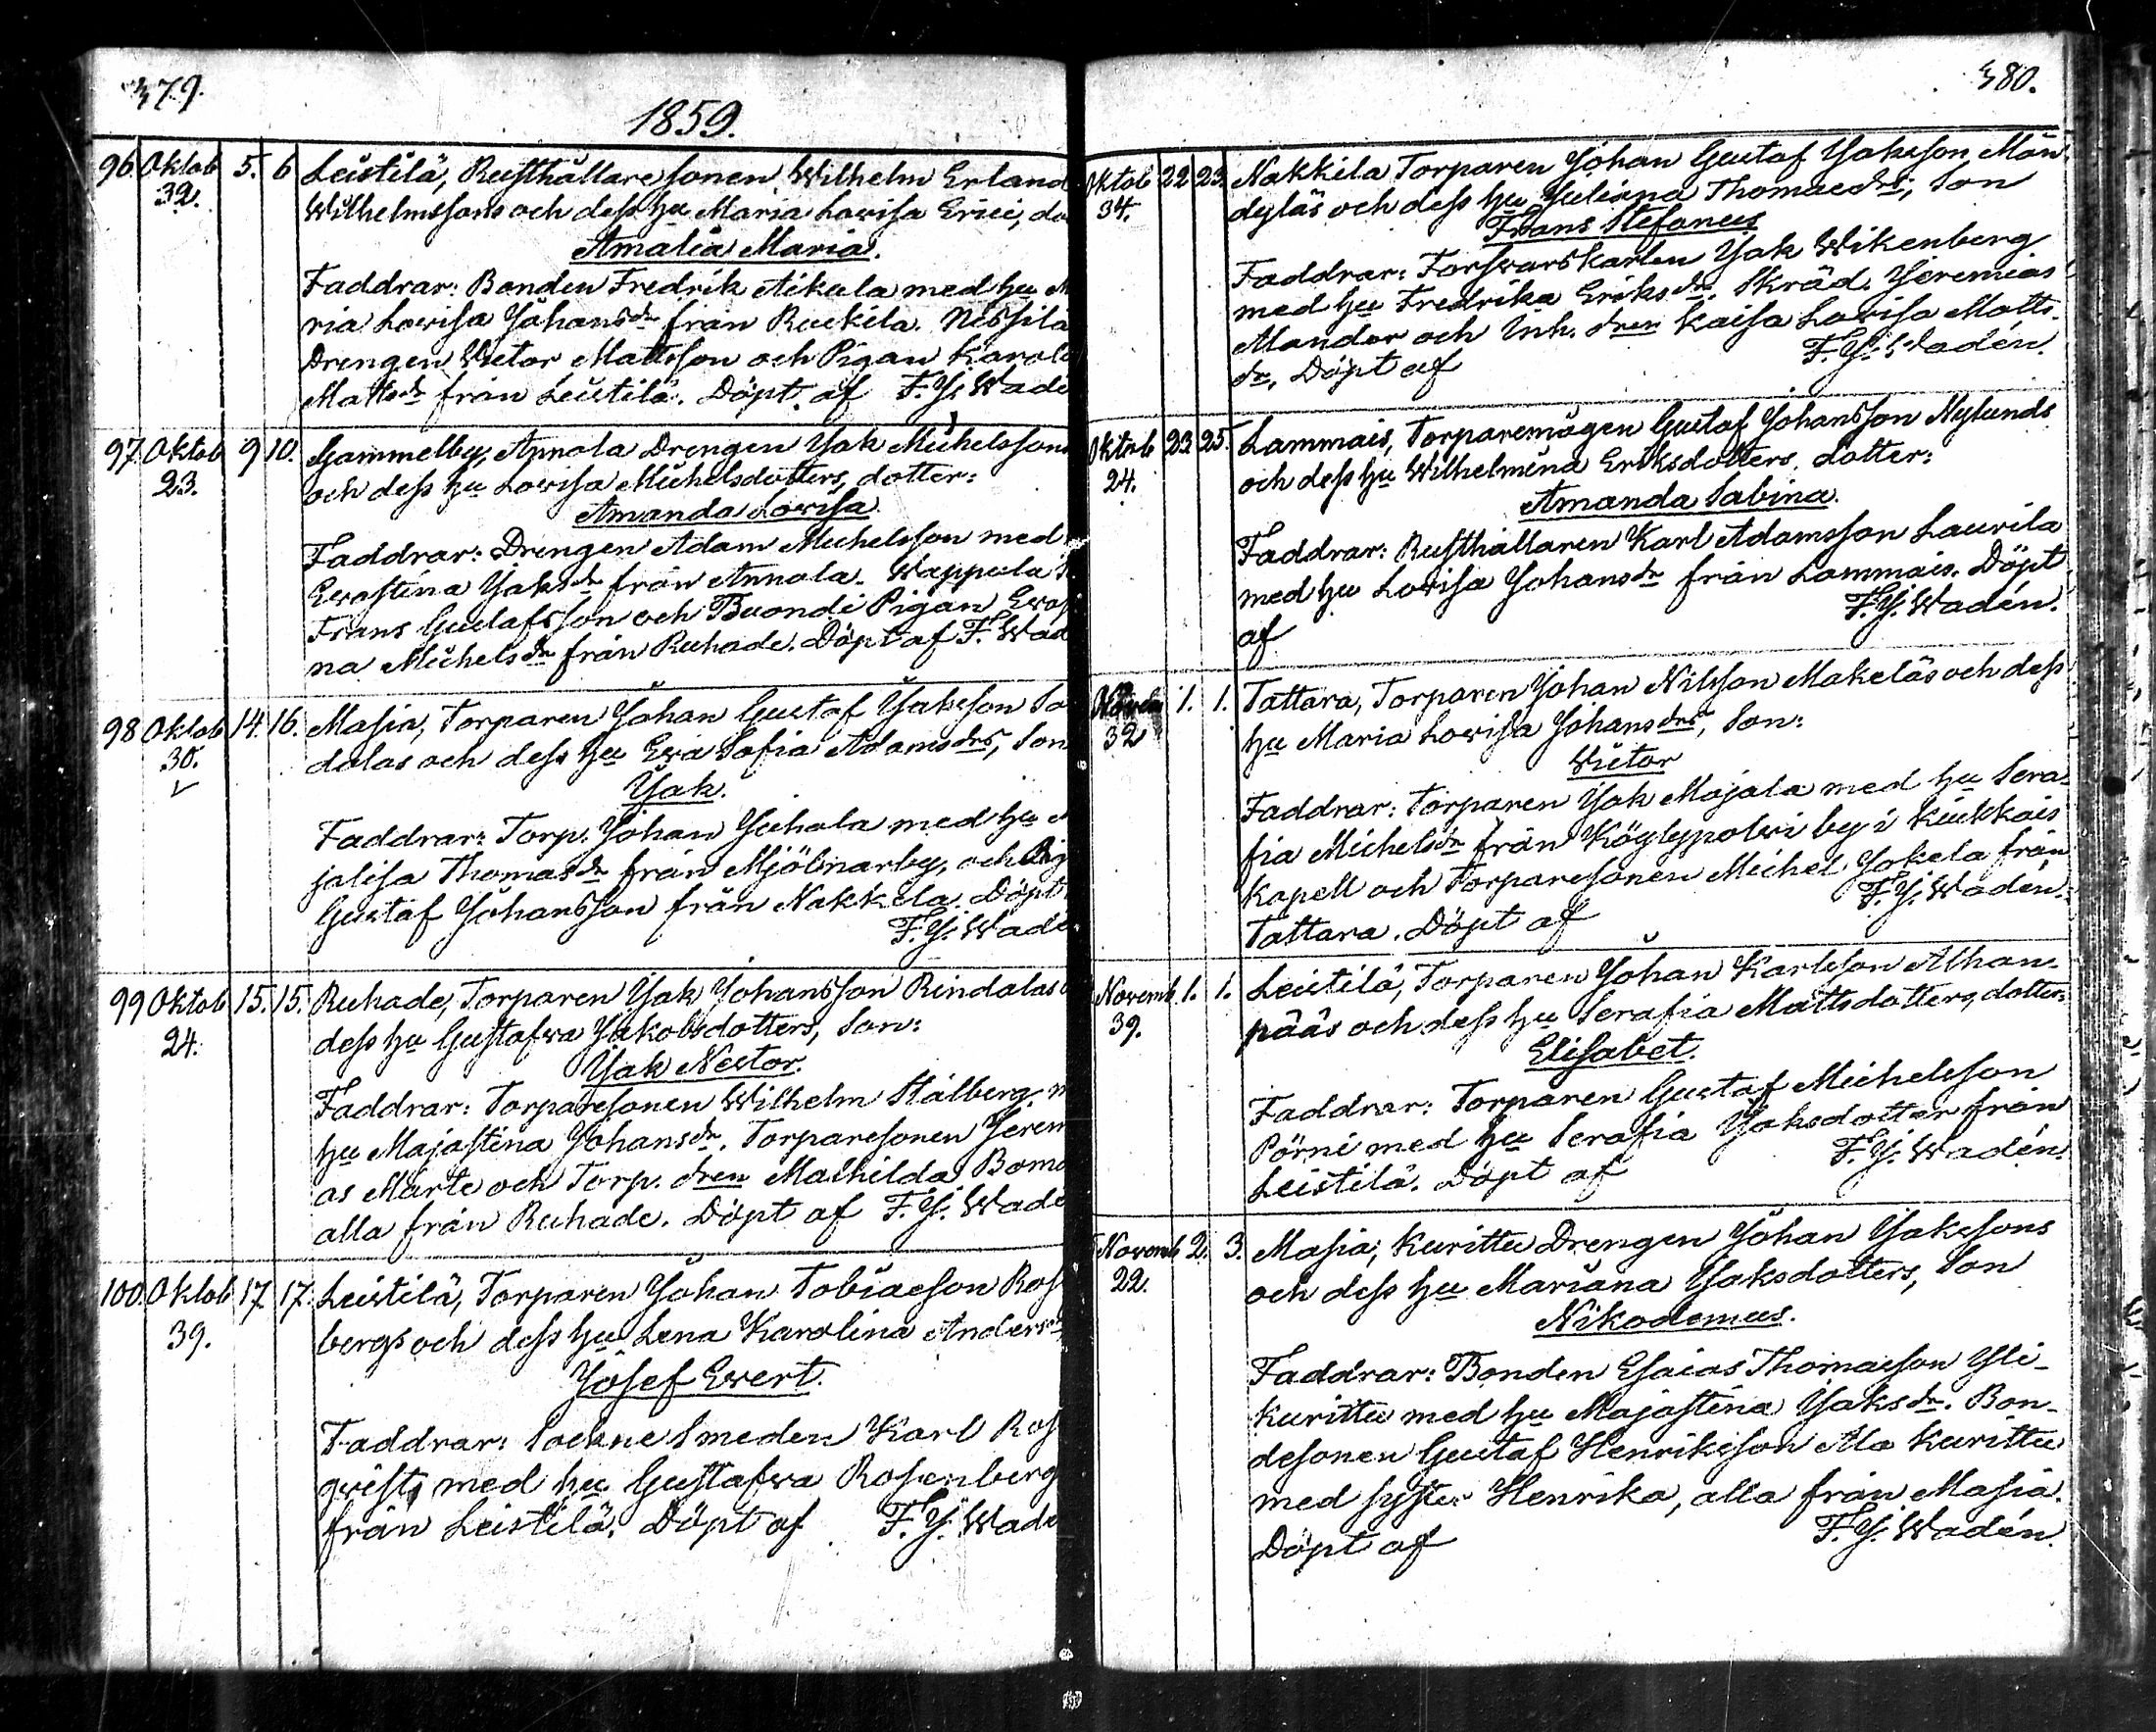 379.
1859.
96. Oktob 5. 6 Leistilä, Rusthållaresonen Wilhelm Erland
32. Wilhelmssons och dess hu Maria Lovisa Erici, do
Amalia Maria.
Faddrar: Bonden Fredrik Aikala med hu M
ria Lovisa Johansdr från Ruckila. Nissilä
Drengen Victor Mattsson och Pigan Karoli
Mattsdr från Leistilä. Döpt af F. J. Wadé
97. Oktob 9 10. Gammelby, Annola Drengen Jak Michelssons
23. och dess hu Lovisa Michelsdotters, dotter:
Amanda Lovisa.
Faddrar: Drengen Adam Michelsson med
Evastina Jaksdr från Annola. Wappula
Frans Gustafsson och Buondi Pigan Evas
na Michelsdr från Ruhade. Döpt af F. Wad
98 Oktob 14. 16. Masia, Torparen Johan Gustaf Jaksson So
30. dalas och dess hu Eva Sofia Adamsdrs, Son
Jak.
Faddrar: Torp. Johan Juhola med hu
jalisa Thomasdr från Mjölnarby, och
Gustaf Johansson från Nakkila. Döpt
F. J. Wadé
99 Oktob 15. 15. Ruhade, Torparen Jak Johansson Rindalas
24. dess hu Gustafva Jakobsdotters, Son:
Jak Nestor.
Faddrar: Torparesonen Wilhelm Stålberg m
hu Majastina Johansdr. Torparesonen Jerem
as Marte och Torp. dren Mathilda Bom
alla från Ruhade. Döpt af F. J. Wadé
100. Oktob 17. 17. Leistilä, Torparen Johan Tobiaeson Ros
39. bergs och dess hu Lena Karolina Anders
Josef Evert.
Faddrar: Sockne Smeden Karl Ros
qvist med hu Gustafva Rosenberg
från Leistilä. Döpt af F. J. Wadé
380.
Oktob 22 23. Nakkila Torparen Johan Gustaf Jaksson Män
34. dyläs och dess hu Juliana Thomaedrs, Son
Frans Stefanus
Faddrar: Forsvarskarlen Jak Wikenberg
med hu Fredrika Eriksdr. Skräd. Jeremias
Mandor och Inh. dren Kaisa Lovisa Matts
dr, Döpt af F. J. Wadén.
Oktob 23 25. Lammais, Torparemågen Gustaf Johansson Nylunds
24. och dess hu Wilhelmina Eriksdotters, dotter:
Amanda Sabina.
Faddrar: Rusthållaren Karl Adamsson Laurila
med hu Lovisa Johansdr från Lammais. Döpt
af F. J. Wadén.
Novem 1. 1. Tattara, Torparen Johan Nilsson Makeläs och dess
32 hu Maria Lovisa Johansdrs, Son:
Victor
Faddrar: Torparen Jak Majala med hu Sera-
fia Michelsdr från Köylypolvi by i Kiukkais
Kapell och Torparesonen Michel Jokela från
Tattara. Döpt af F. J. Wadén.
Novemb. 1. 1. Leistilä, Torparen Johan Karlsson Alhan-
39. pääs och dess hu Serafia Mattsdotters, dotter:
Elisabet.
Faddrar: Torparen Gustaf Michelsson
Pörni med hu Serafia Jaksdotter från
Leistilä. Döpt af F. J. Wadén.
Novemb 2. 3. Masia, Kurittu Drengen Johan Jakssons
22. och dess hu Mariana Jaksdotters, Son
Nikodemus.
Faddrar: Bonden Esaias Thomaeson Yli-
Kurittu med hu Majastina Jaksdr. Bon-
desonen Gustaf Henriksson Ala Kurittu
med syster Henrika, alla från Masia.
Döpt af F. J. Wadén.